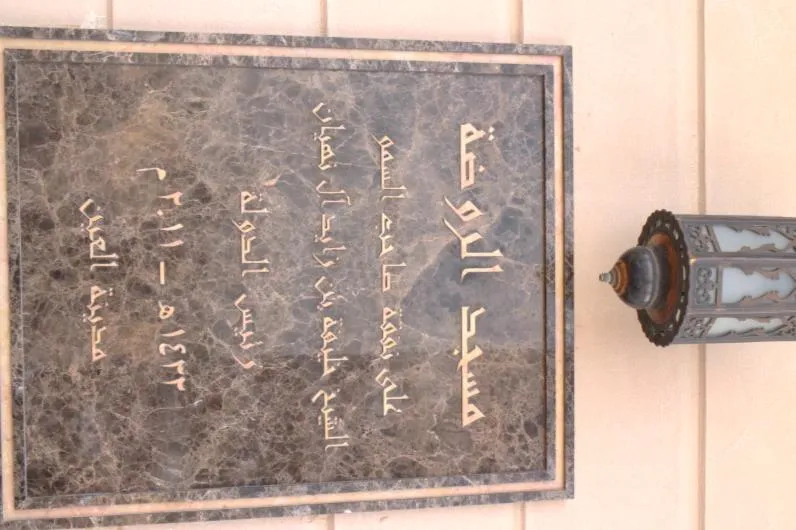 مسجد الروضة
على نفقة صاحب السمو
الشيخ خليفة بن زايد آل نهيان
رئيس الدولة
١٤٣٢ه – ٢٠١١م
مدينة العين